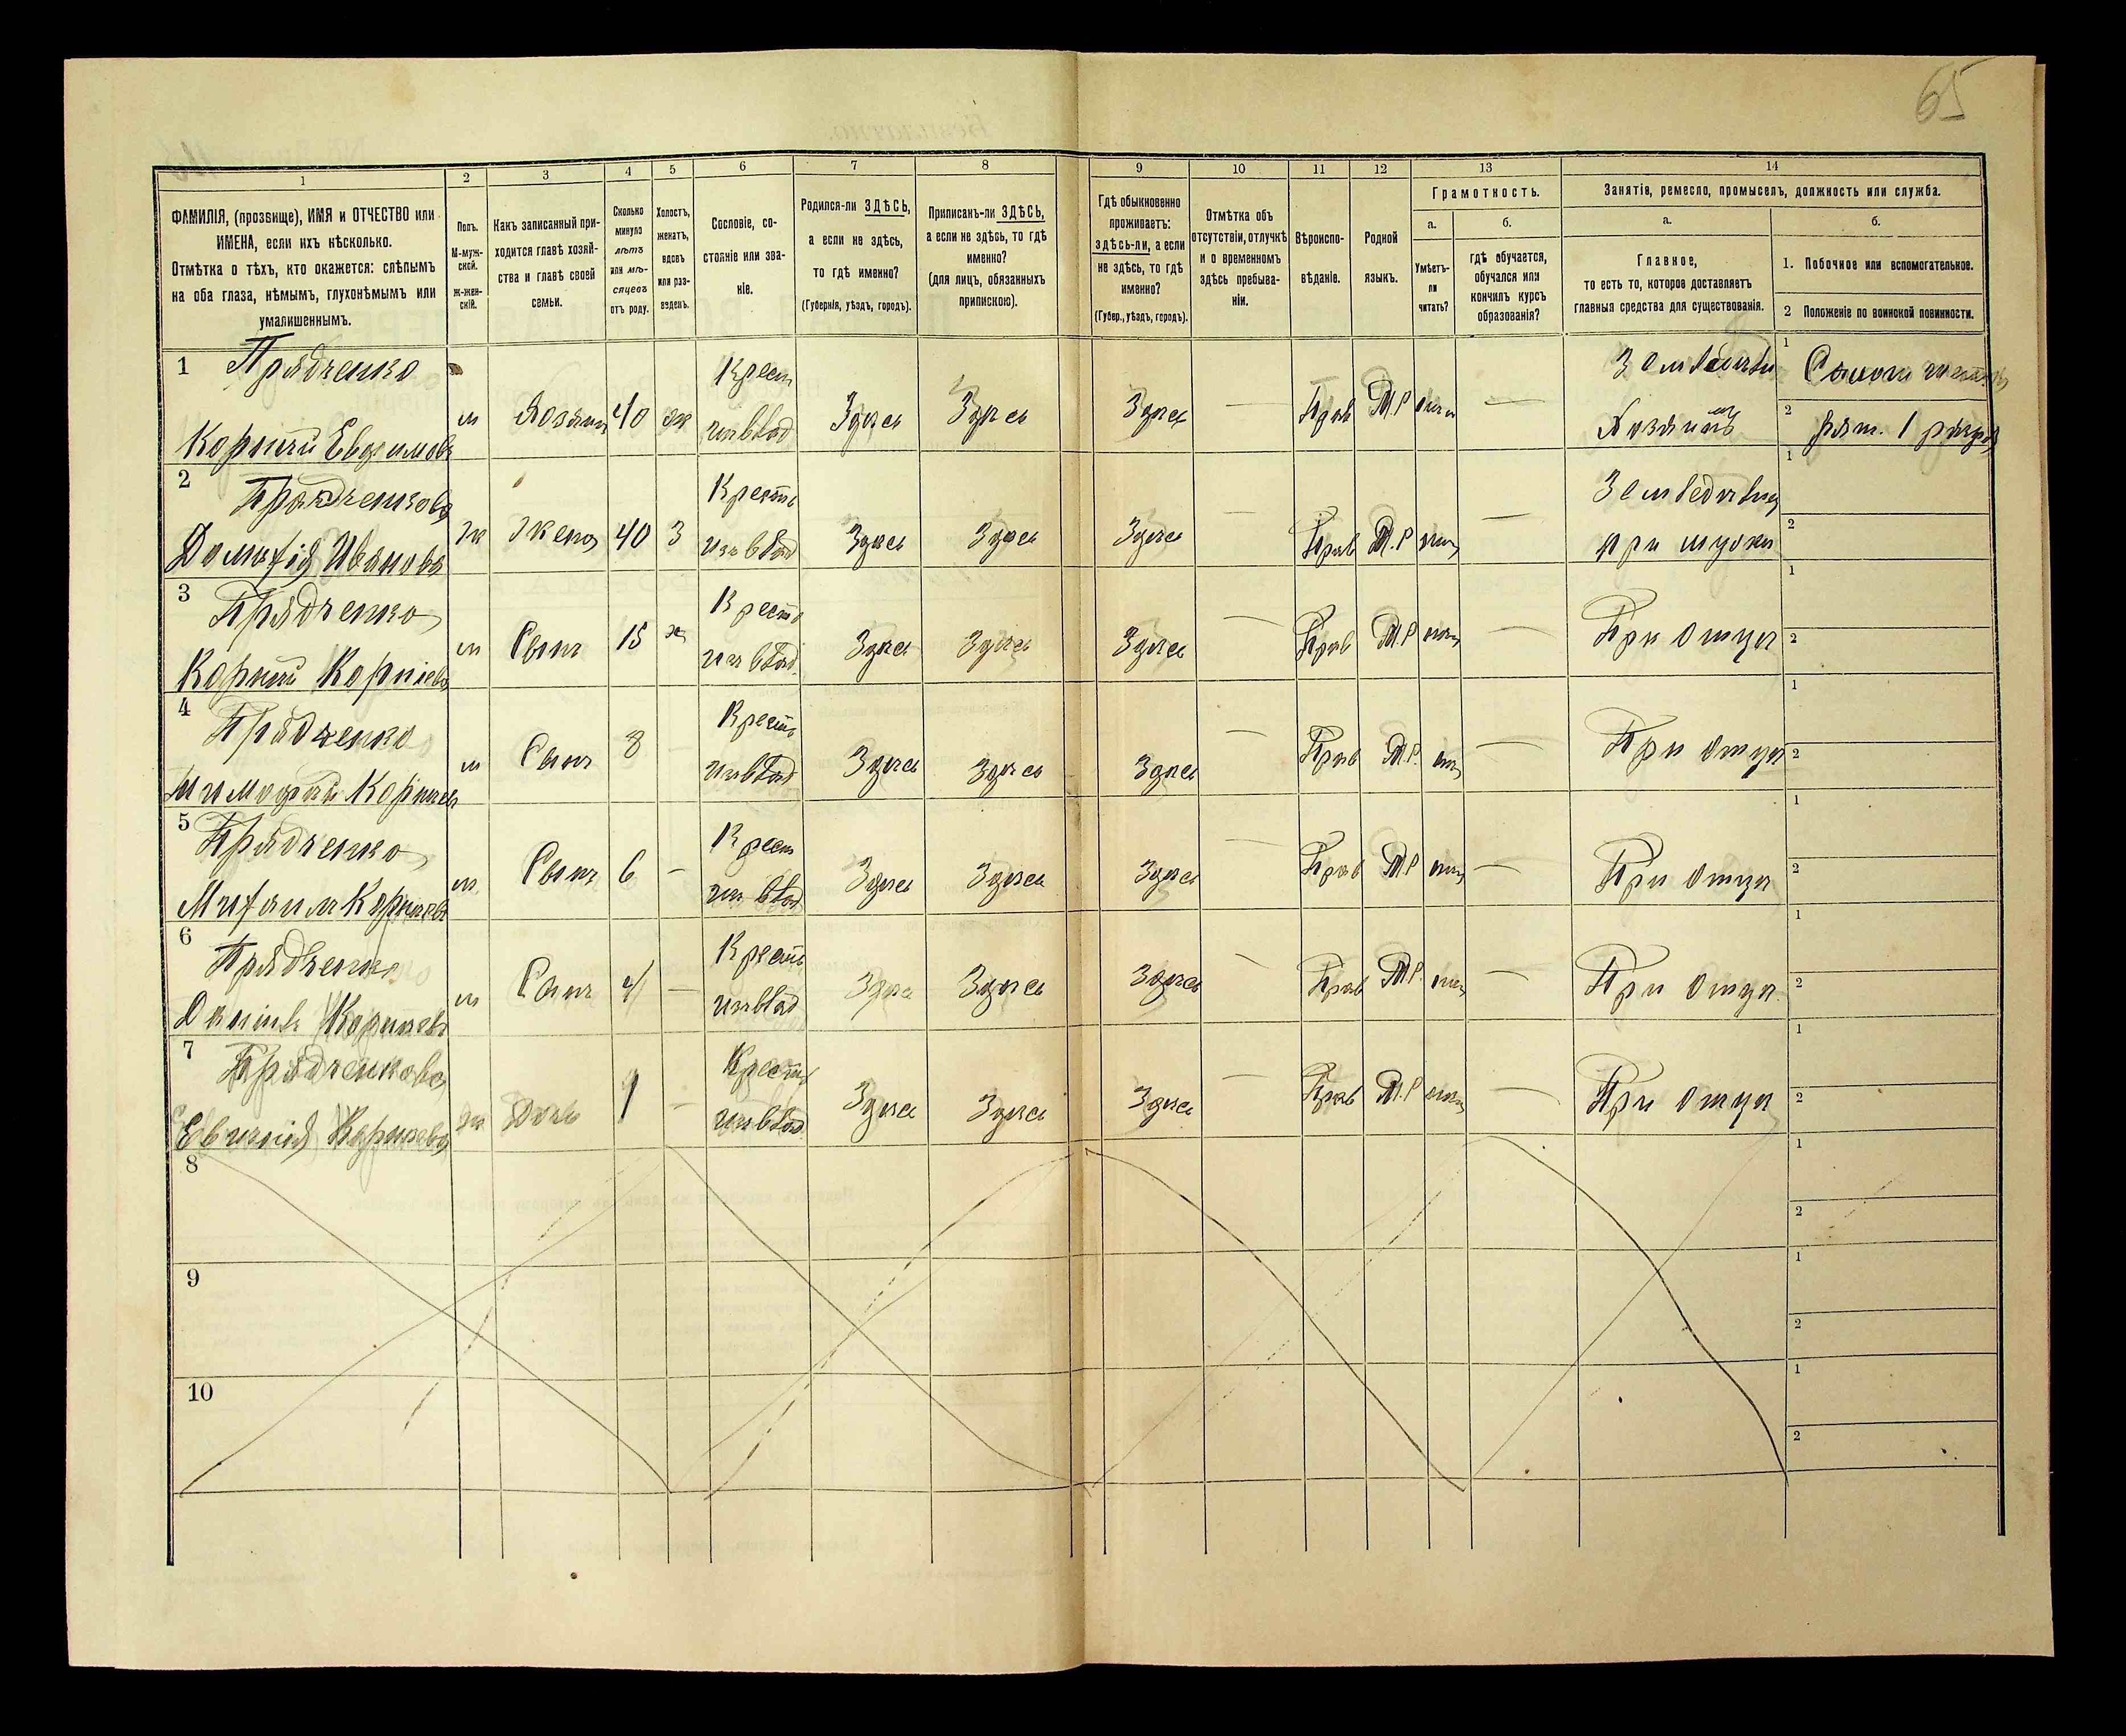 65
1 2 3 4 5 6 7 8 9 10 11 12 13 14
ФАМИЛІЯ, (прозвище), ИМЯ и ОТЧЕСТВО или
ИМЕНА, если ихъ нѣсколько.
Отмѣтка о тѣхъ, кто окажется: слѣпымъ
на оба глаза, нѣмымъ, глухонѣмымъ или
умалишеннымъ.
Полъ.
М-муж-
ской.
Ж-жен-
скій.
Какъ записанный при-
ходится главѣ хозяй-
ства и главѣ своей
семьи.
Сколько
минуло
лѣтъ
или мѣ-
сяцевъ
отъ роду.
Холостъ,
женатъ,
вдовъ
или раз-
веденъ.
Сословіе, со-
стояніе или зва-
ніе.
Родился-ли ЗДѢСЬ,
а если не здѣсь,
то гдѣ именно?
(Губернія, уѣздъ, городъ).
Приписанъ-ли ЗДѢСЬ,
а если не здѣсь, то гдѣ
именно?
(для лицъ, обязанныхъ
припискою).
Гдѣ обыкновенно
проживаетъ:
здѣсь-ли, а если
не здѣсь, то гдѣ
именно?
(Губер., уѣздъ, городъ).
Отмѣтка объ
отсутствіи, отлучкѣ
и о временномъ
здѣсь пребыва-
ніи.
Вѣроиспо-
вѣданіе.
Родной
языкъ.
Грамотность.
а.
Умѣетъ-
ли
читать?
б.
гдѣ обучается,
обучался или
кончилъ курсъ
образованія?
Занятія, ремесло, промыселъ, должность или служба.
а.
Главное,
то есть то, которое доставляетъ
главныя средства для существованія.
б.
1. Побочное или вспомогательное.
2 Положеніе по воинской повинности.
1 Прядченко Крест 1
Корній Евфимовъ м Хозяинъ 40 ж Здѣсь Здѣсь Здѣсь — Прав М.Р —
Хозяинъ 2 рат. 1
2 Прядченкова Кресть 1
Домнікія Иванова ж Жена 40 З Здѣсь Здѣсь Здѣсь — Прав М.Р —
при мужѣ 2
3 Прядченко Кресть 1
Корній Корніевъ м Сынъ 15 х Здѣсь Здѣсь Здѣсь — Прав М.Р — При отцѣ 2
4 Прядченко Кресть 1
Тимофей Корніевъ м Сынъ 8 — Здѣсь Здѣсь Здѣсь — Прав М.Р. — При отцѣ 2
5 Прядченко Крест 1
Михаилъ Корніевъ м Сынъ 6 — Здѣсь Здѣсь Здѣсь — Прав М.Р — При отцѣ 2
6 Прядченко Кресть 1
Даніилъ Корніевъ м Сынъ 4 — Здѣсь Здѣсь Здѣсь — Прав М.Р. — При отцѣ 2
7 Прядченкова Кресть 1
Корніева ж Дочь — Здѣсь Здѣсь Здѣсь — Прав М.Р — При отцѣ 2
8 1
2
9 1
2
10 1
2